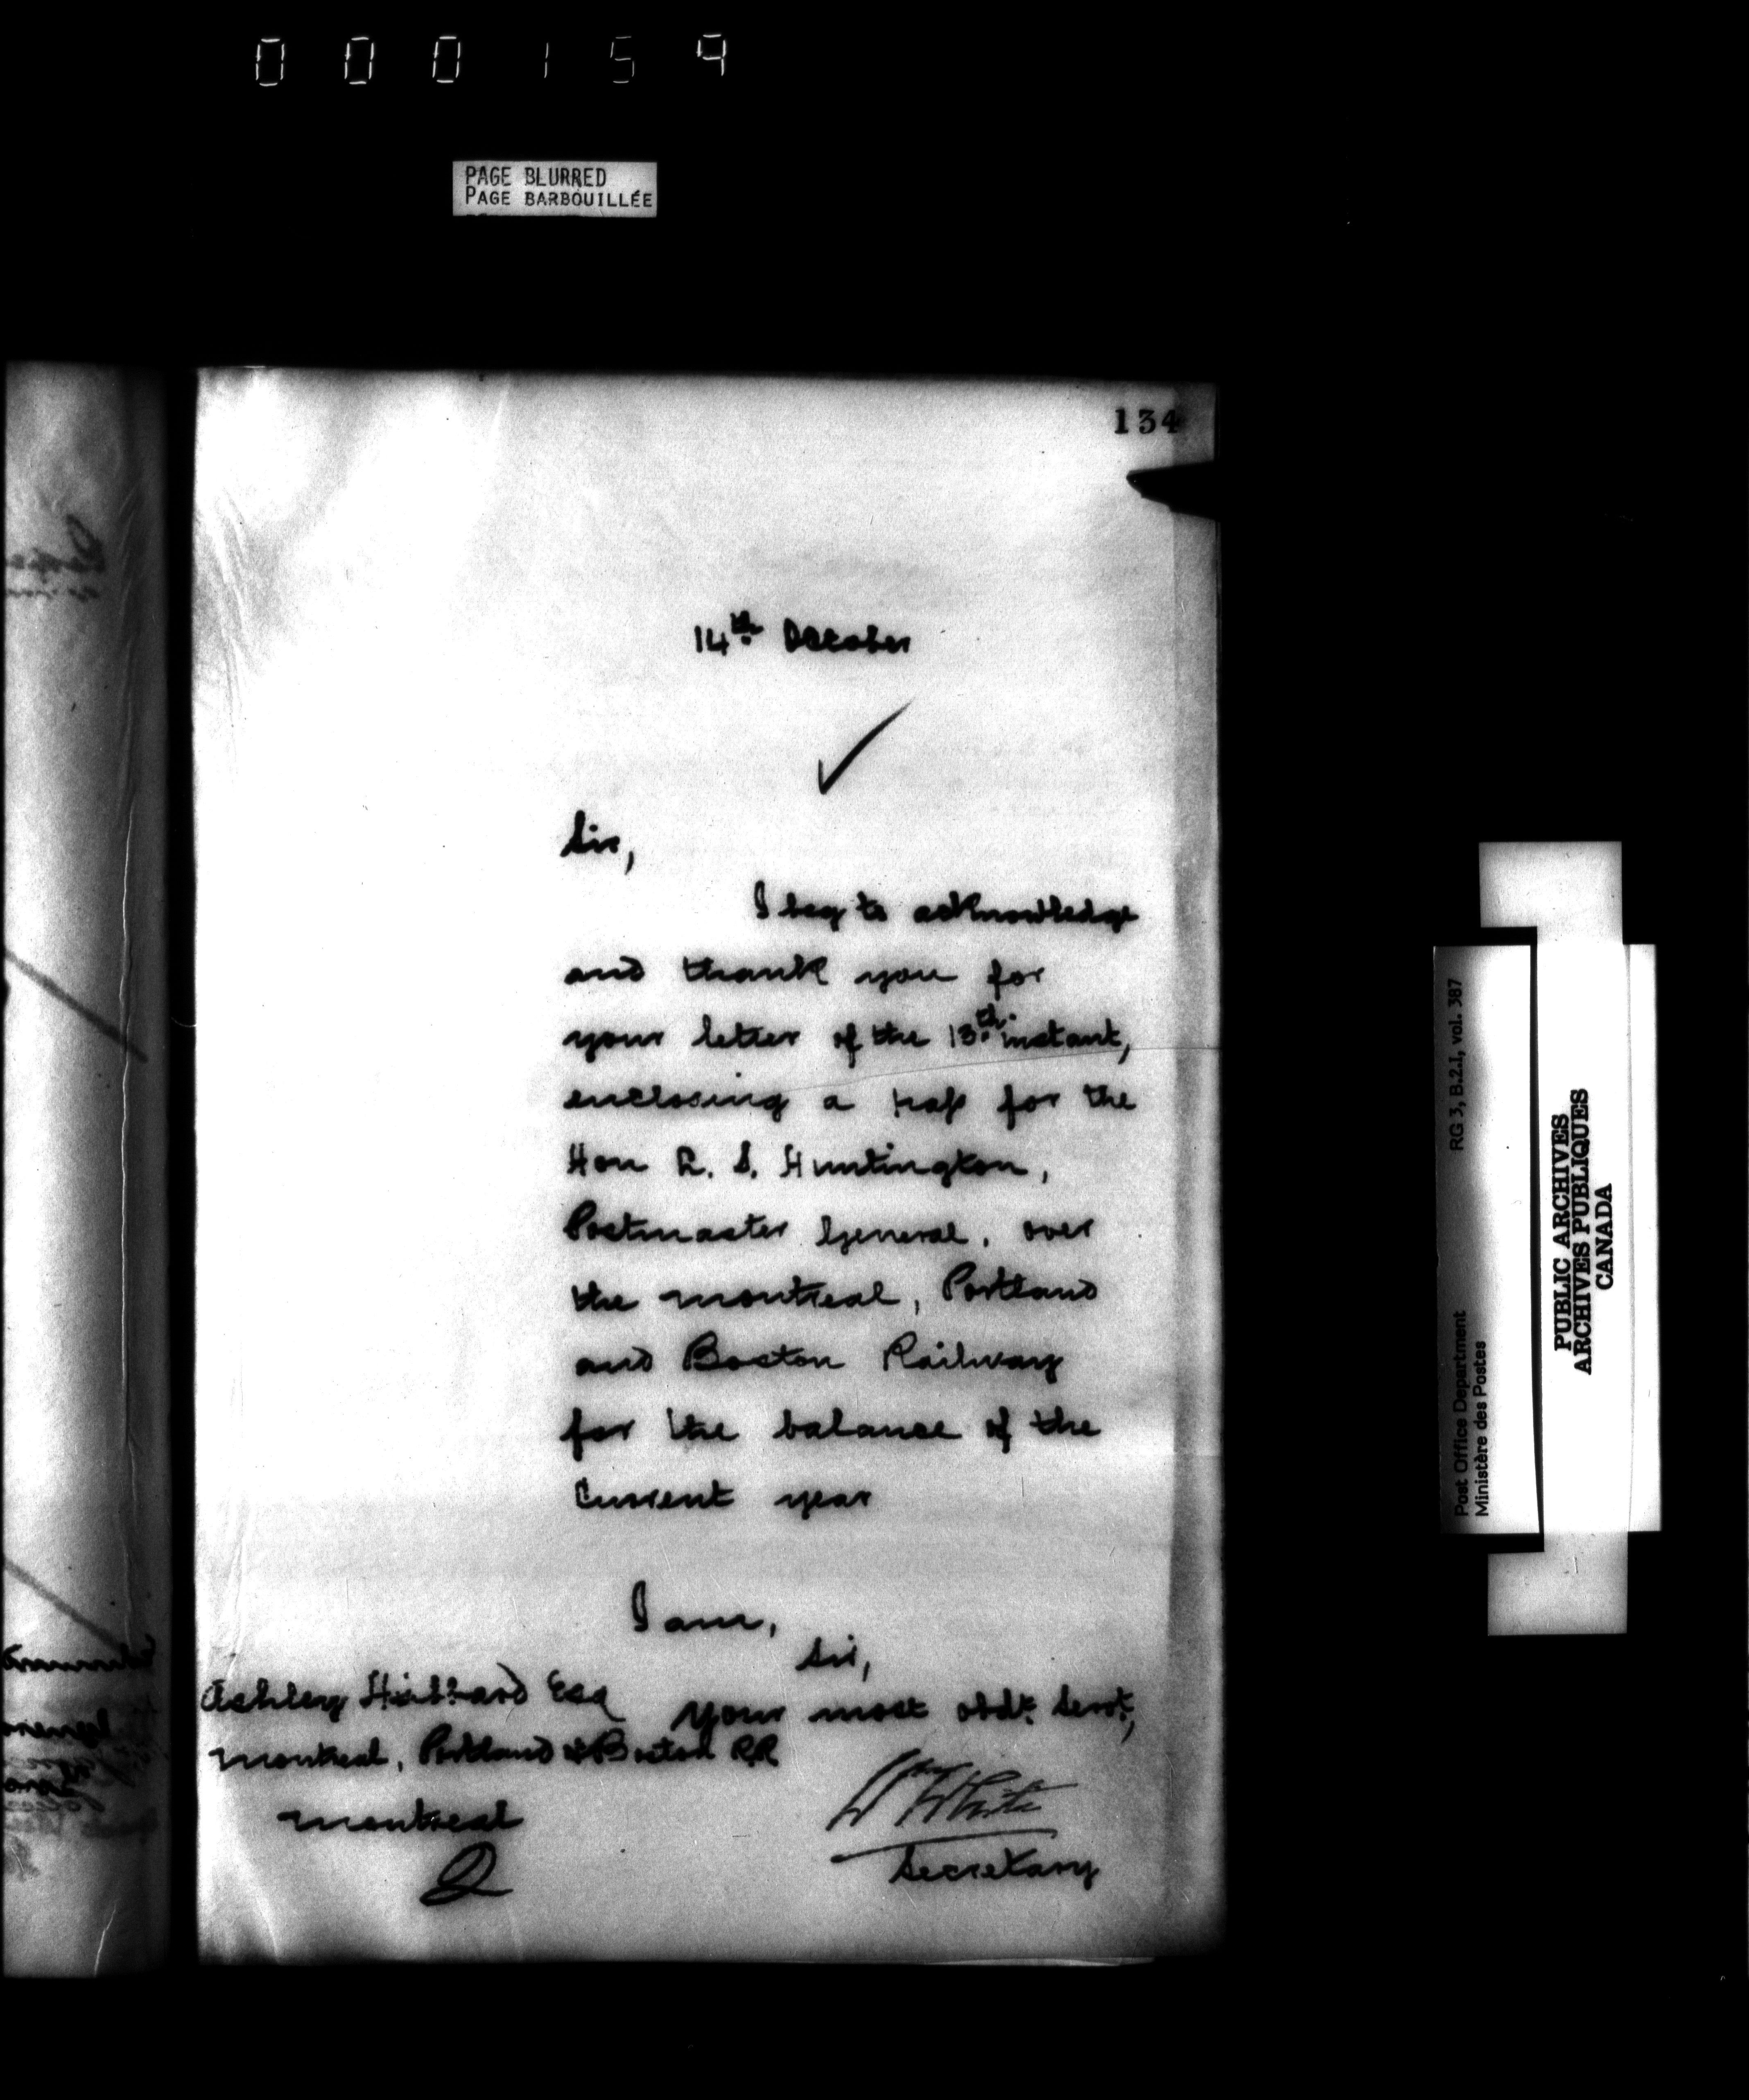 000159
PAGE BLURRED
PAGE BARBOUILLÉE
134
14th October
Sir,
I beg to acknowledge
and thank you for
your letter of the 13th instant,
enclosing a pass for the
Hon L. S. Huntington,
Postmaster General, over
the Montreal, Portland
and Boston Railway
for the balance of the
Current year
I am,
Sir,
Your most obdt. Servt,
Ashley Hibbard Esq
Montreal, Portland & Boston RR
Montreal
Wm White
Secretary
Post Office Department RG 3, B.2.I, vol. 387
Ministère des Postes
PUBLIC ARCHIVES
ARCHIVES PUBLIQUES
CANADA